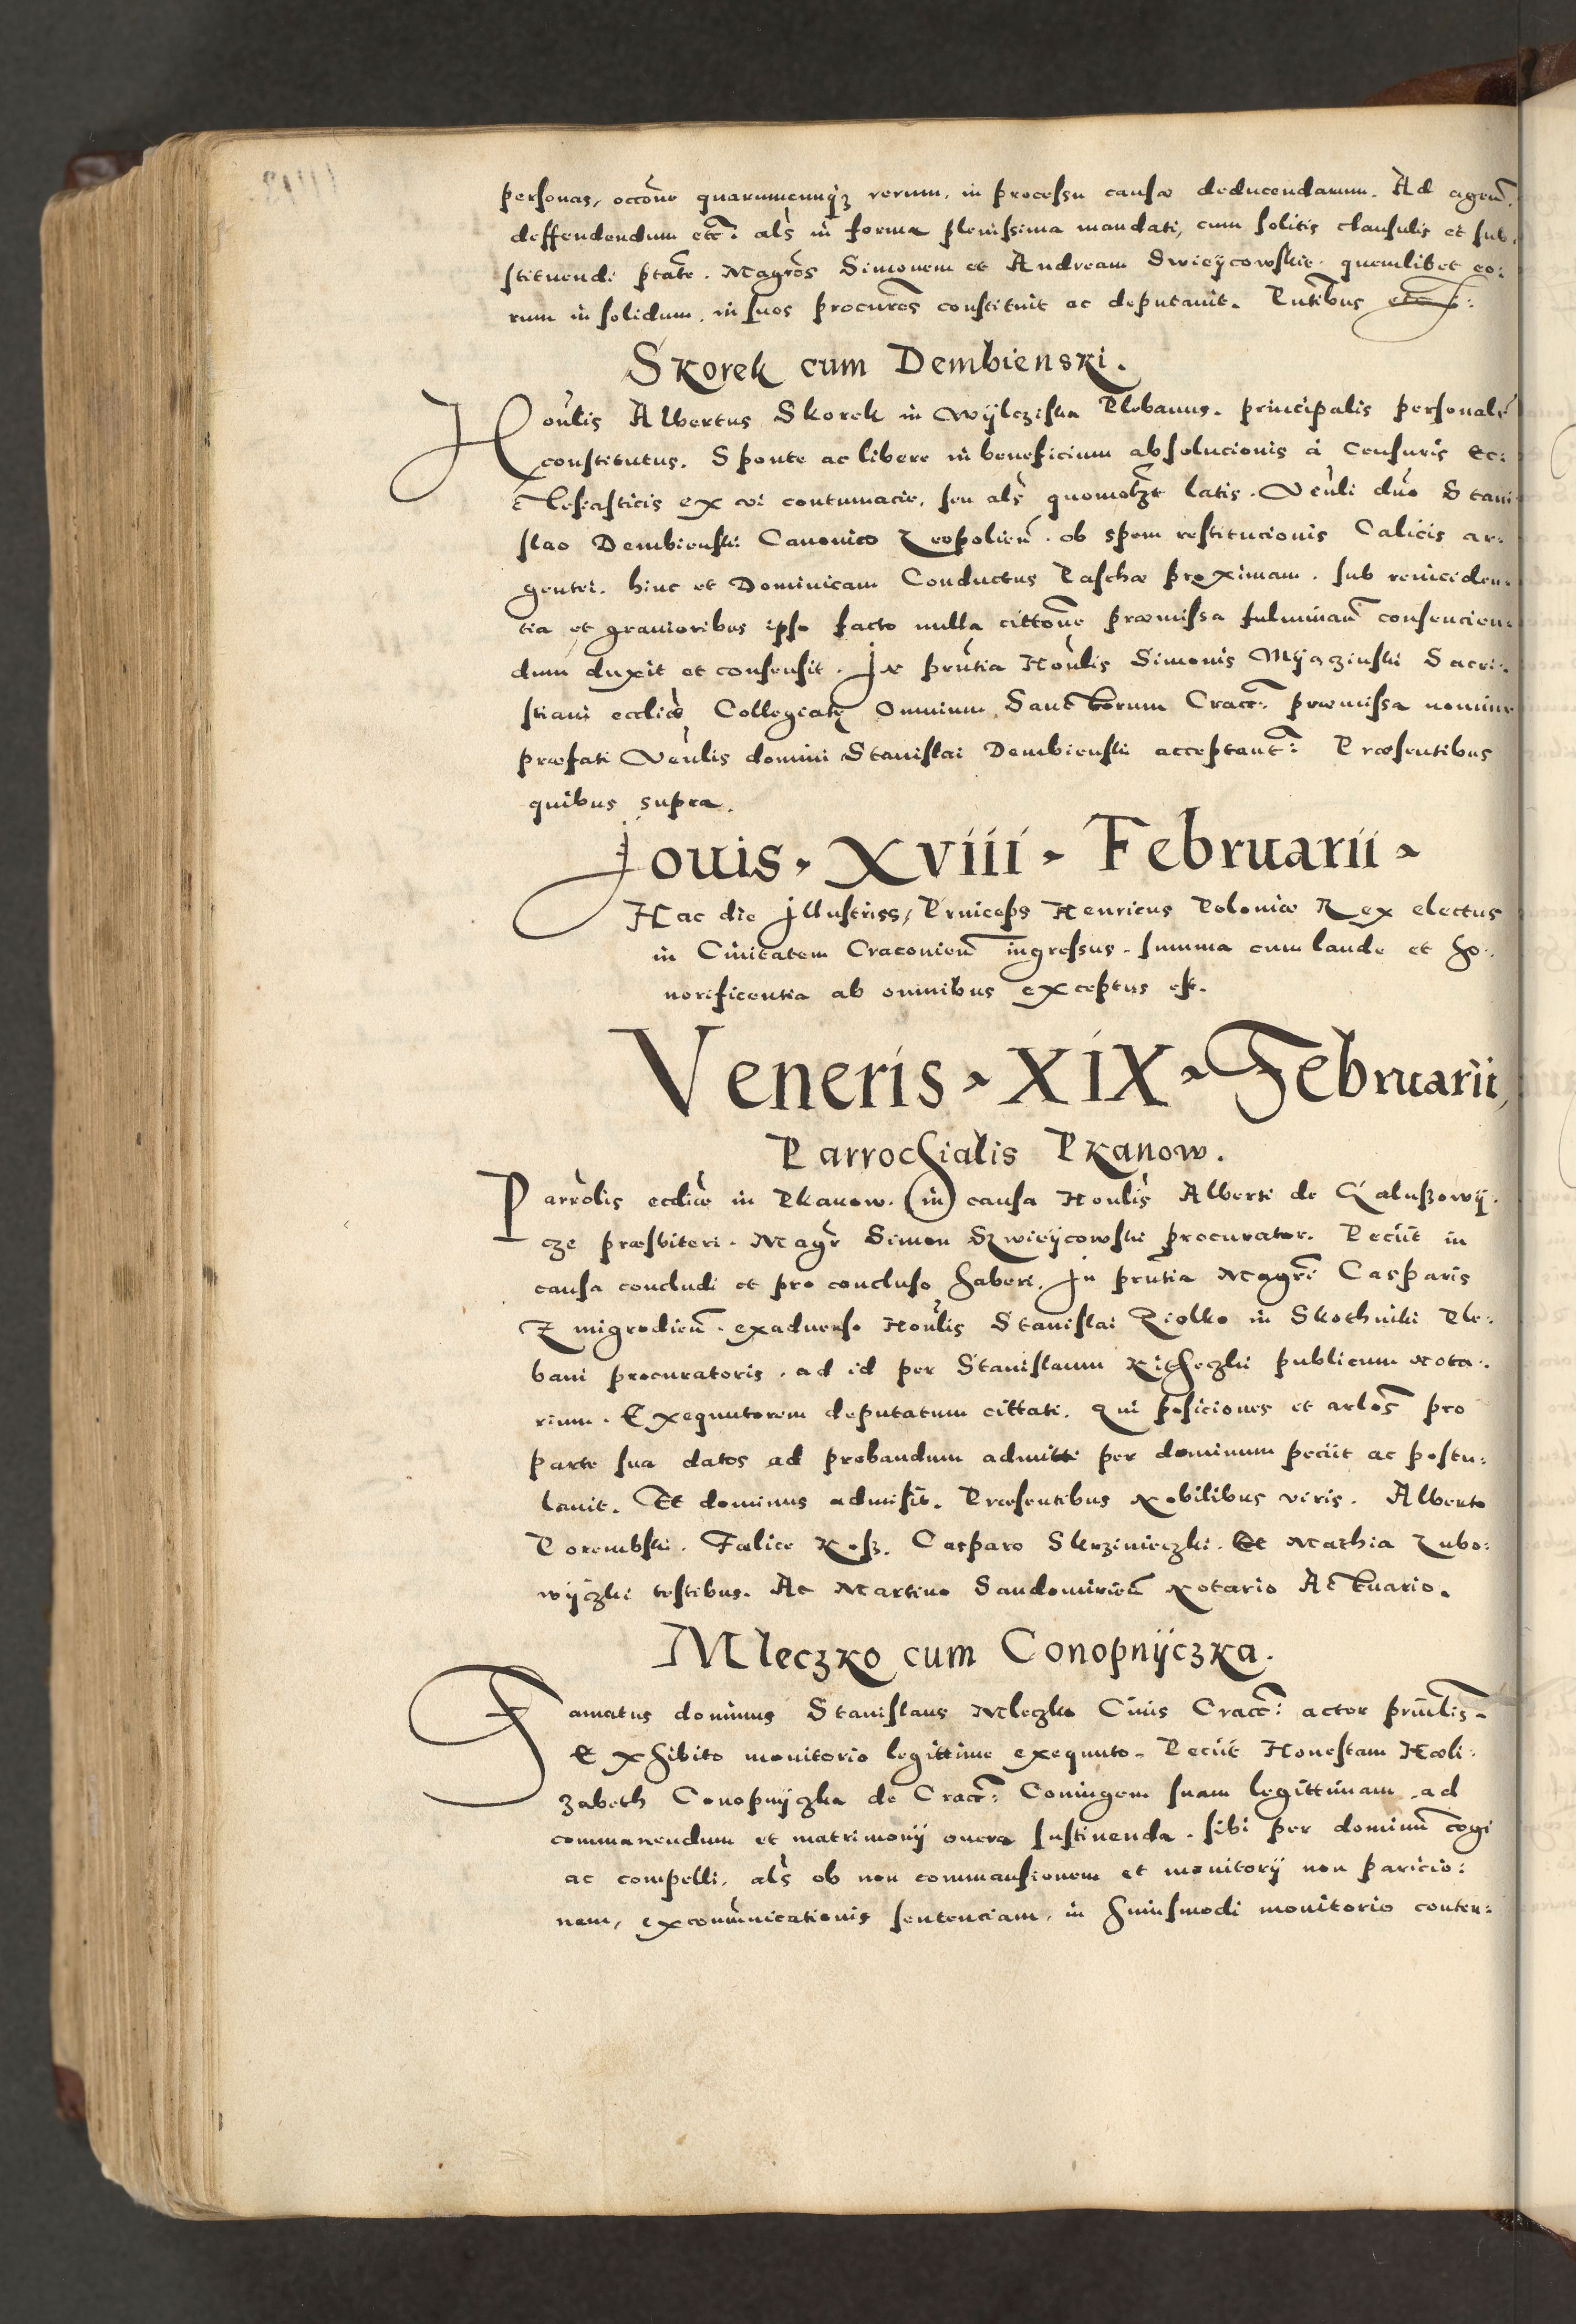 personas, occõne quarumcumq3 rerum, in processu causæ deducendarum. Ad agen̄.
deffendendum etc̄: als̀ in forma plenissima mandati, cum solitis clausulis et sub:
stituendi ptãte. Magrõs Simonem et Andream Swieÿcowskie. quemlibet eo:
rum in solidum, in suos procurẽs constituit ac deputauit. Pntĩbus
Skorek cum Dembienski.
Honũlis Albertus Skorek in Wÿlcziska Plebanus. principalis personalr̃
constitutus. Sponte ac libere in beneficium absolucionis à Censuris Ec:
clesiasticis ex vi contumacie, seu als̀ quomolz̃t latis. Venũli dño Stani
slao Dembienski Canonico Leopolien̄. ob spem restitucionis Calicis ar:
gentei. hinc et Dominicam Conductus Paschæ proximam. sub reinciden:
tia et grauioribus ipso facto nulla cittõne præmissa fulminan̄ consencien:
dum duxit et consensit. In prñtia Honũlis Simonis Mÿaczinski Sacri:
stiani eccliæ̀ Collegiatę Omnium Sanctorum Cracc̄: præmissa nomine
præfati Venũlis domini Stanislai Dembienski acceptant̄: Præsentibus
quibus supra.
Jouis. Xviii. Februarii.
Hac die Jllustriss, Princeps Henricus Poloniæ Rex electus
in Ciuitatem Cracouien̄ ingressus. summa cum laude et ho:
norificentia ab omnibus exceptus est.
Veneris. XIX. Februarii,
Parrochialis Pkanow.
Parròlis eccliæ̀ in Pkanow. (in) causa Honũlis Alberti de Galuszowÿ:
cze præsbiteri. Magr̃ Simon Szwieÿcowski procurator. Peciit in
causa concludi et pro concluso haberi. In prñtia Magrĩ Casparis
Zmigrodien̄. exaduerso Honũlis Stanislai Ziolko in Skothniki Ple:
bani procuratoris. ad id per Stanislaum Richeczki publicum Nota:
rium. Exequutorem deputatum cittati. qui posiciones et arlõs pro
parte sua datos ad probandum admitti per dominum peciit ac postu:
lauit. Et dominus admisit. Præsentibus Nobilibus viris. Alberto
Porembski. Fælice Rosz. Casparo Skrzinieczki. Et Mathia Lubo:
wÿczki testibus. Ac Martino Sandomirien̄ Notario Actuario.
Mleczko cum Conopnÿczka.
Famatus dominus Stanislaus Mleczko Ciuis Cracc̄: actor prinlĩs.
Exhibito monitorio legittime exequuto. Peciit Honestam Hæli:
zabeth Conopnÿczka de Cracc̄: Coniugem suam legittimam, ad
commanendum et matrimonÿ onera sustinenda. sibi per dominũ cogi
ac compelli, als̀ ob non commansionem et monitorÿ non paricio:
nem, excom̃unicationis sentenciam, in huiusmodi monitorio conten: